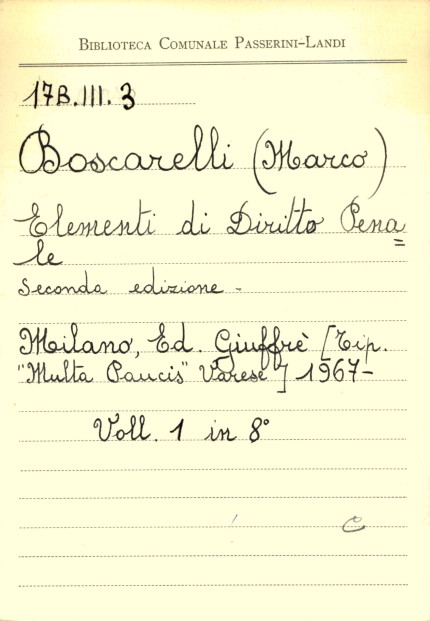 Biblioteca Comunale Passerini-Landi
17B.III.3
Boscarelli (Marco)
Elementi di Diritto Pena=
le
Seconda edizione -
Milano, Ed. Giuffrè [Tip.
"Multa Paucis" Varese] 1967-
Voll. 1 in 8°
C